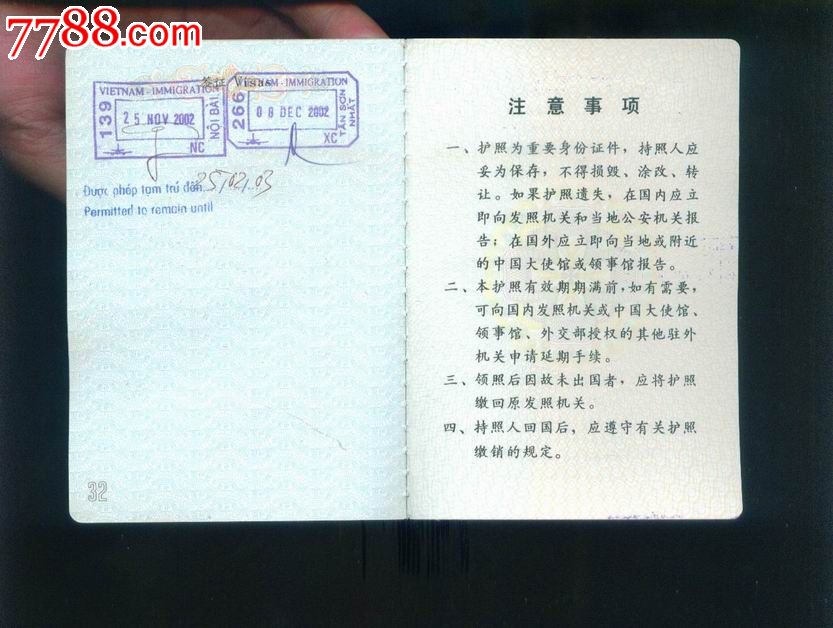 7788.com
签证 Visas
VIETNAM - IMMIGRATION
139
25 NOV 2002
NỘI BÀI
NC
VIETNAM - IMMIGRATION
266
08 DEC 2002
TÂN SƠN NHẤT
XC
Được phép tạm trú đến 25/02/03
Permitted to remain until
32
注意事项
一、护照为重要身份证件，持照人应
妥为保存，不得损毁、涂改、转
让。如果护照遗失，在国内应立
即向发照机关和当地公安机关报
告；在国外应立即向当地或附近
的中国大使馆或领事馆报告。
二、本护照有效期期满前，如有需要，
可向国内发照机关或中国大使馆、
领事馆、外交部授权的其他驻外
机关申请延期手续。
三、领照后因故未出国者，应将护照
缴回原发照机关。
四、持照人回国后，应遵守有关护照
缴销的规定。